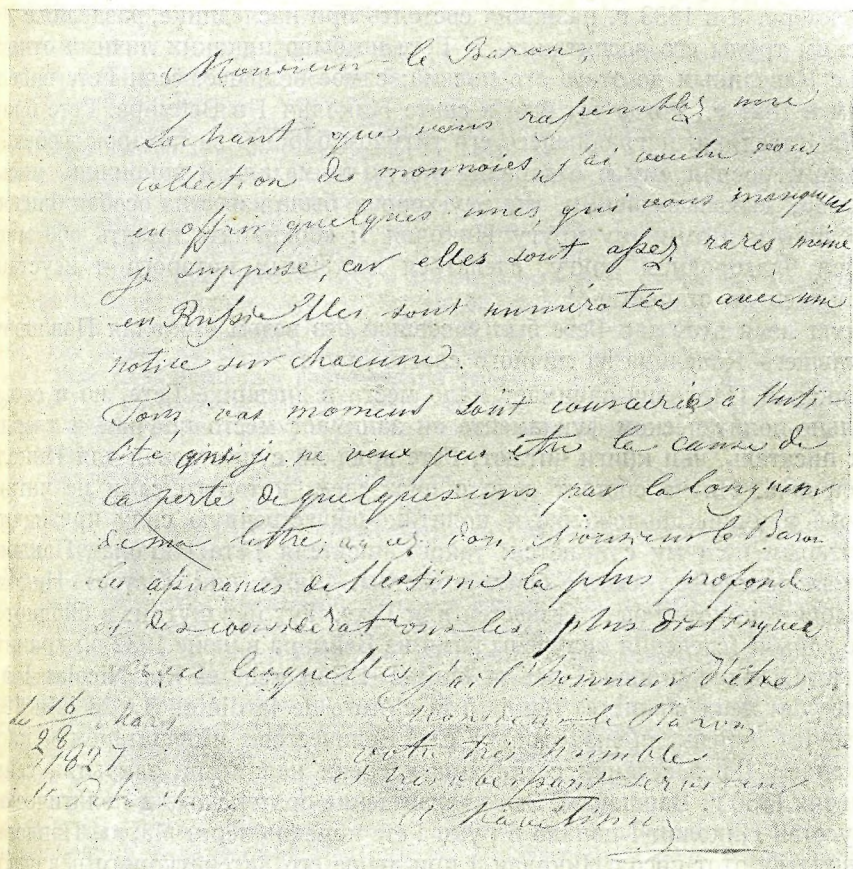 Monsieur le Baron,
Sachant que vous rassemblez une
collection de monnoies, j'ai voulu vous
en offrir quelques unes, qui vous manquent
je suppose, car elles sont assez rares même
en Russie Elles sont numérotées avec une
notice sur chacune.
Tous vos momens sont consacrés à l'uti-
lité, ainsi je ne veux pas être la cause de
la perte de quelques uns par la longueur
de ma lettre; Monsieur le Baron
les assurances de l'estime la plus profonde
et des considerations les plus distinguées
avec lesquelles j'ai l'honneur d'être
Monsieur le Baron,
le 16/28 Mars
1827
votre très humble
et très obeissant serviteur